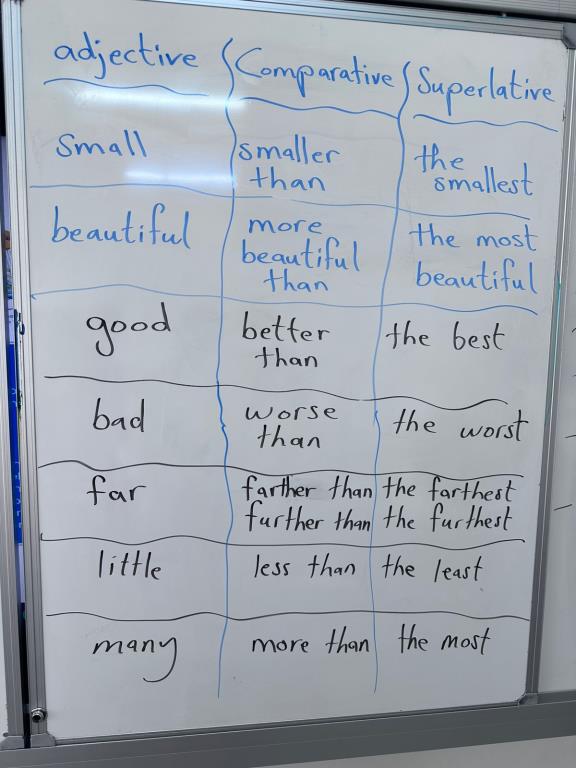 adjective Comparative Superlative
small smaller the
than smallest
beautiful more the most
beautiful beautiful
than
good better the best
than
bad worse the worst
than
far farther than the farthest
further than the furthest
little less than the least
many more than the most